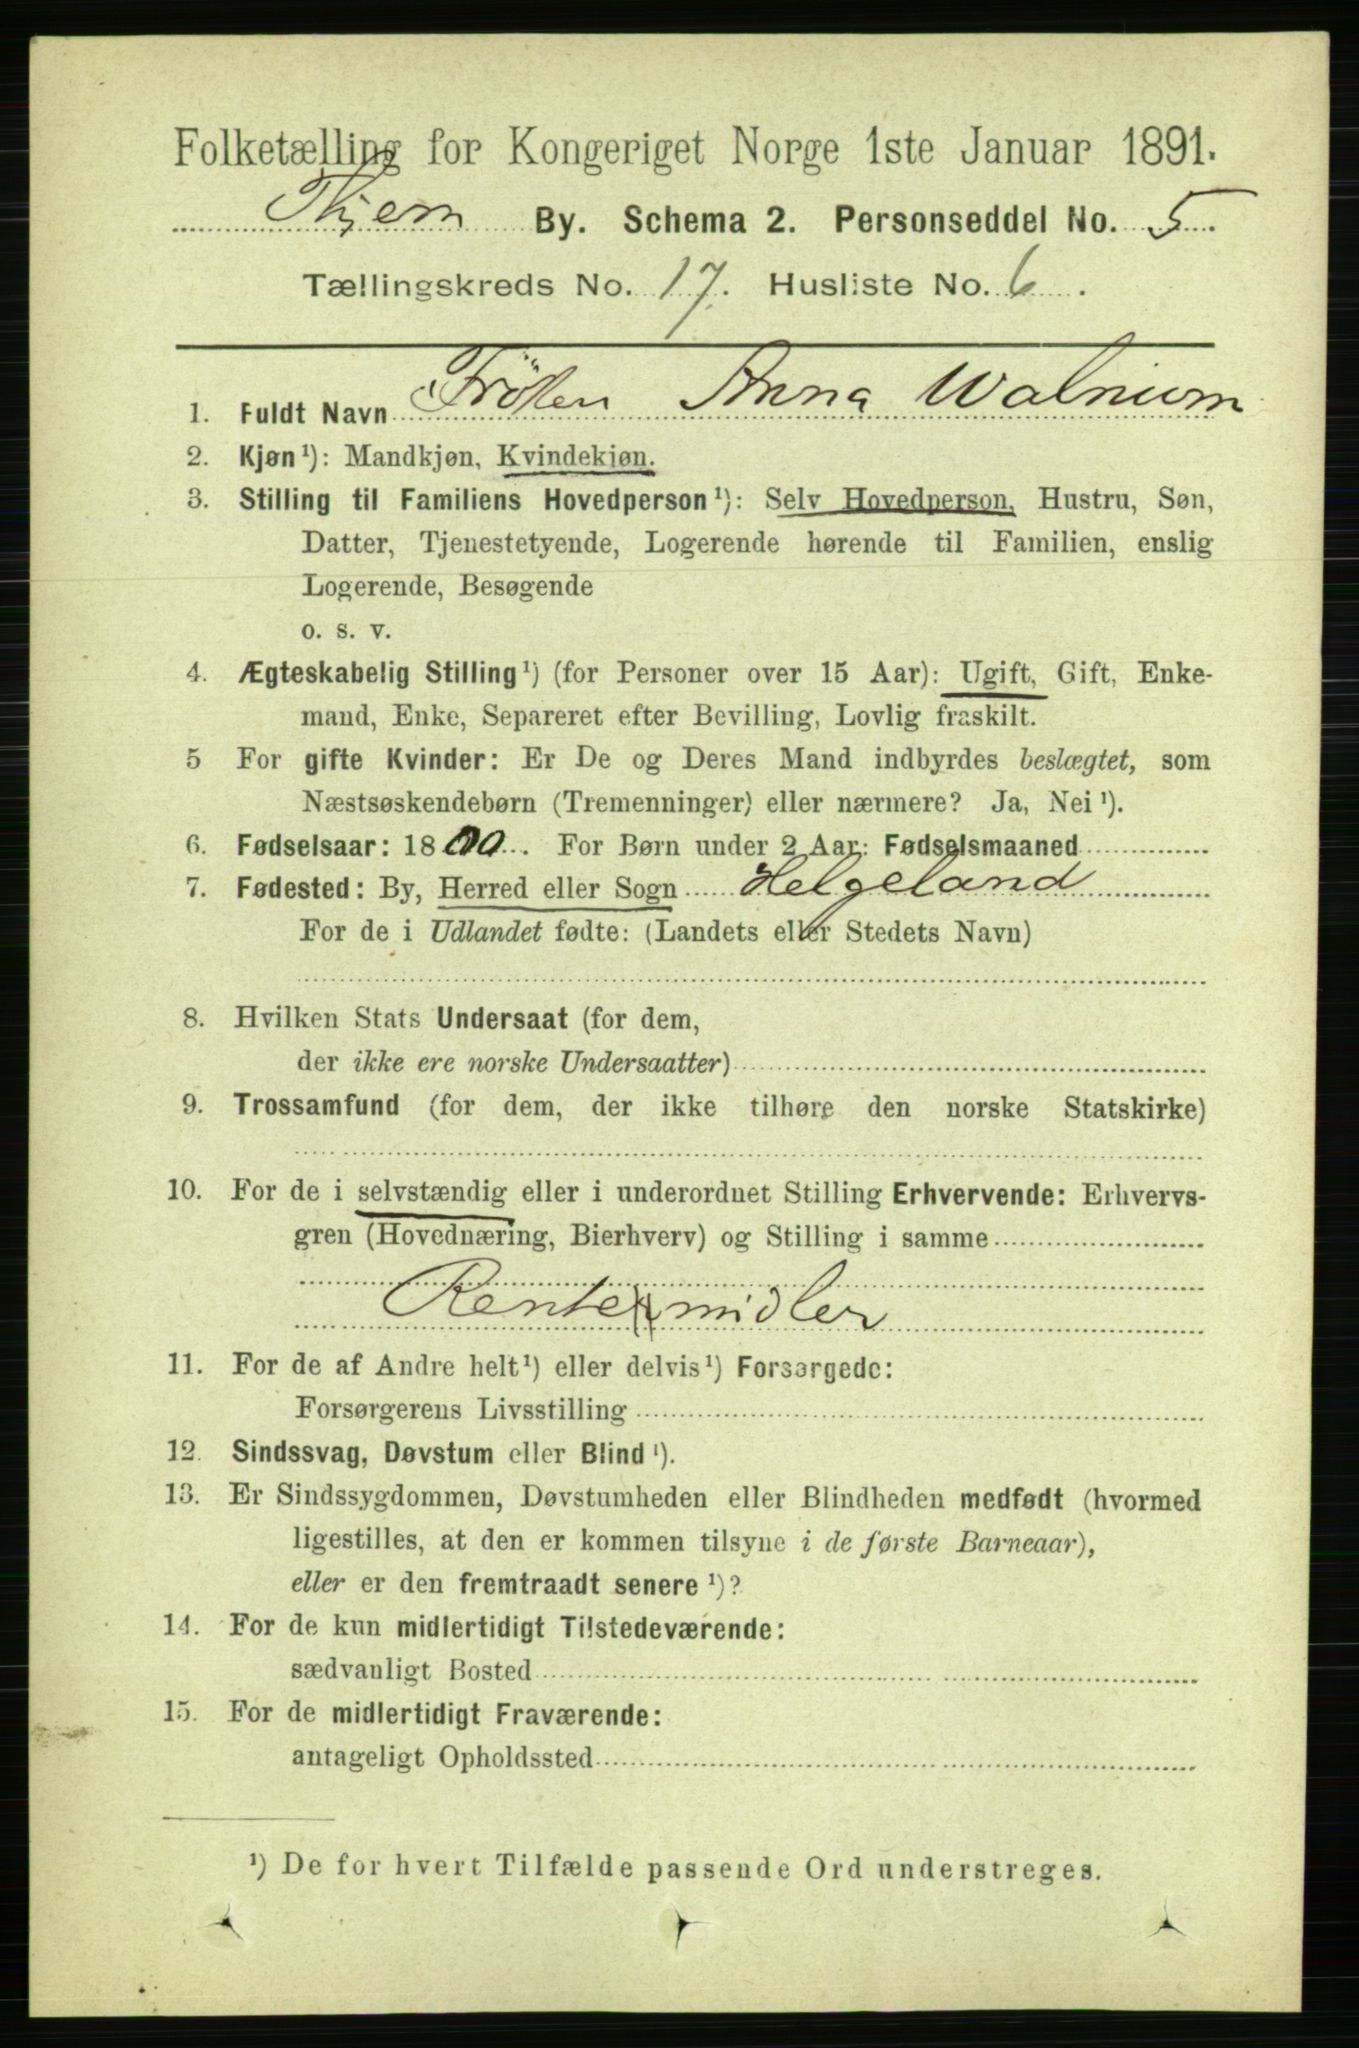 Folketælling for Kongeriget Norge 1ste Januar 1891.
Thjem By. Schema 2. Personseddel No. 5.
Tællingskreds No. 17. Husliste No. 6.
1. Fuldt Navn Fröken Anna Walnum
2. Kjøn¹): Mandkjøn, Kvindekjøn.
3. Stilling til Familiens Hovedperson¹): Selv Hovedperson, Hustru, Søn,
Datter, Tjenestetyende, Logerende hørende til Familien, enslig
Logerende, Besøgende
o. s. v.
4. Ægteskabelig Stilling¹) (for Personer over 15 Aar): Ugift, Gift, Enke-
mand, Enke, Separeret efter Bevilling, Lovlig fraskilt.
5 For gifte Kvinder: Er De og Deres Mand indbyrdes beslægtet, som
Næstsøskendebørn (Tremenninger) eller nærmere? Ja, Nei¹).
6. Fødselsaar: 1800. For Børn under 2 Aar: Fødselsmaaned
7. Fødested: By, Herred eller Sogn Helgeland
For de i Udlandet fødte: (Landets eller Stedets Navn)
8. Hvilken Stats Undersaat (for dem,
der ikke ere norske Undersaatter)
9. Trossamfund (for dem, der ikke tilhøre den norske Statskirke)
10. For de i selvstændig eller i underordnet Stilling Erhvervende: Erhvervs-
gren (Hovednæring, Bierhverv) og Stilling i samme
Rentemidler
11. For de af Andre helt¹) eller delvis¹) Forsørgede:
Forsørgerens Livsstilling
12. Sindssvag, Døvstum eller Blind¹).
13. Er Sindssygdommen, Døvstumheden eller Blindheden medfødt (hvormed
ligestilles, at den er kommen tilsyne i de første Barneaar),
eller er den fremtraadt senere¹)?
14. For de kun midlertidigt Tilstedeværende:
sædvanligt Bosted
15. For de midlertidigt Fraværende:
antageligt Opholdssted
¹) De for hvert Tilfælde passende Ord understreges.